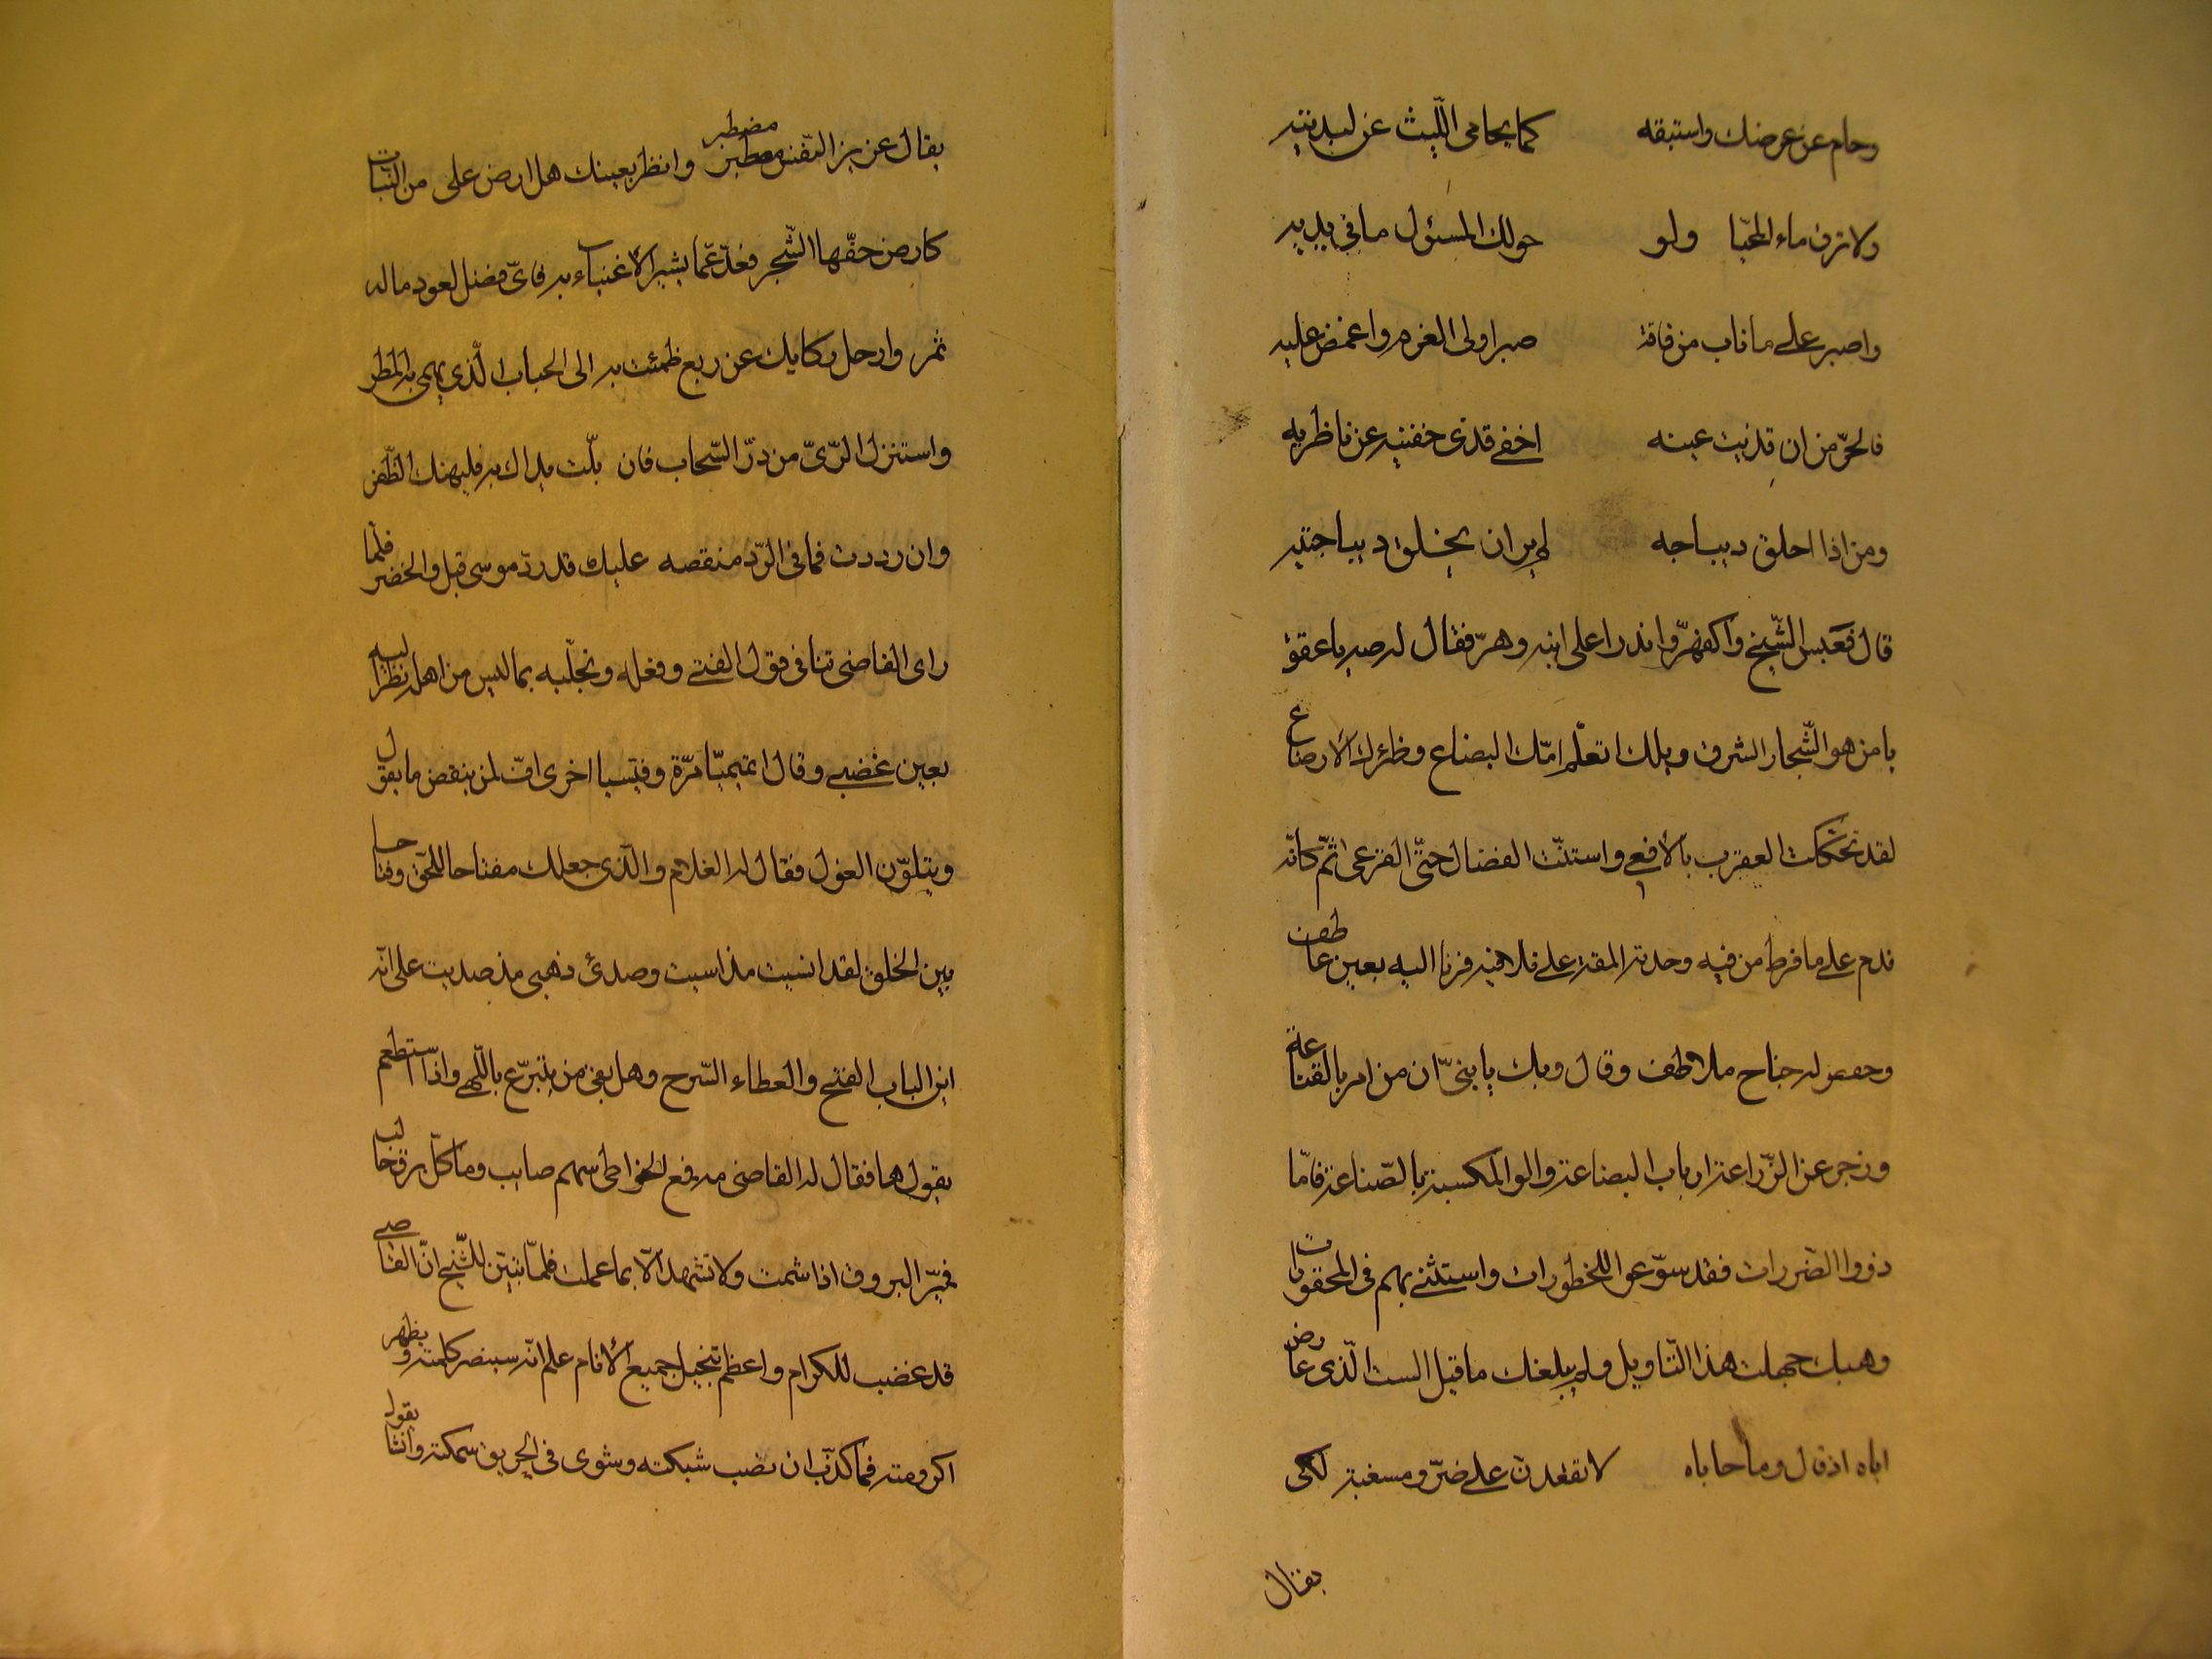 وحام عن عرضك واستبقه كما يحامى اللّيث عن لبدتيه
ولا ترق ماء المحيّا ولو خولك المسئول ما فى يديه
واصبر على ما ناب من فاقة صبر اولى العزم واغمض عليه
فالحرّ من ان قذيت عينه اخفى قذى جفنيه عن ناظريه
ومن اذا اخلق ديباجه لم ير ان يخلق ديباجتيه
قال فعبس الشّيخ واكفهرّ واندرا على ابنه وهرّ فقال له صه يا عقق
يا من هو الشّجا والشرق ويلك اتعلّم امّك البضاع وظئرك الارضاع
لقد تحككت العقرب بالافعى واستنّت الفصال حتّى القرعى ثمّ كانّه
ندم على ما فرط من فيه وحدته المقة على تلافيه فرنا اليه بعين عاطف
وخفض له جناح ملاطف وقال ويك يا بنىّ ان من امر بالقناعة
وزجر عن الضّراعة ارباب البضاعة والوا المكسبة بالصّناعة فامّا
ذووا الضّرورات فقد سوّغوا المحظورات واستثنى بهم فى المحقورات
وهبك جهلت هذا التّاويل ولم يبلغك ما قيل الست الّذى عارض
اباه اذ قال وما حاباه لا تقعدن على ضرّ ومسغبة لكى
يقال
يقال عزيز النّفس مصطبر مضطبر وانظر بعينك هل ارض على من النّبات
كارض حفّها الشّجر فعدّ عمّا يشير الاغنياء به فاىّ فضل لعود ما له
ثمر وارحل ركابك عن ربع ظمئت به الى الجناب الّذى يهمى به المطر
واستنزل الرّىّ من درّ السّحاب فان بلّت يداك به فليهنك الظّفر
وان رددت فما فى الرّد منقصه عليك قد ردّ موسى قبل والخضر فلمّا
راى القاضى تنافى قول الفتى وفعله وتحلّيه بما ليس من اهله نظر اليه
بعين غضبى وقال اتميميّا مرّة وقيسيا اخرى افّ لمن ينقض ما يقول
ويتلوّن الغول فقال له الغلام والّذى جعلك مفتاحا للحق وفتاحا
بين الخلق لقد انسيت مذ اسيت وصدئ ذهنى مذ صديت على انّه
اين الباب الفتح والعطاء السّرح وهل بقى من يتبرّع باللّهى واذا استطعم
يقول ها فقال له القاضى مه فمع الخواطى سهم صايب وما كلّ برق خالب
فميّز البروق اذا شمت ولا تشهد الّا بما علمت فلمّا تبيّن للشّيخ انّ القاضى
قد غضب للكرام واعظم تبخيل جميع الانام علم انّه سينصر كلمته ويظهر
اكرومته فما كذّب ان نصب شبكته وشوى فى الحريق سمكته وانشا يقول